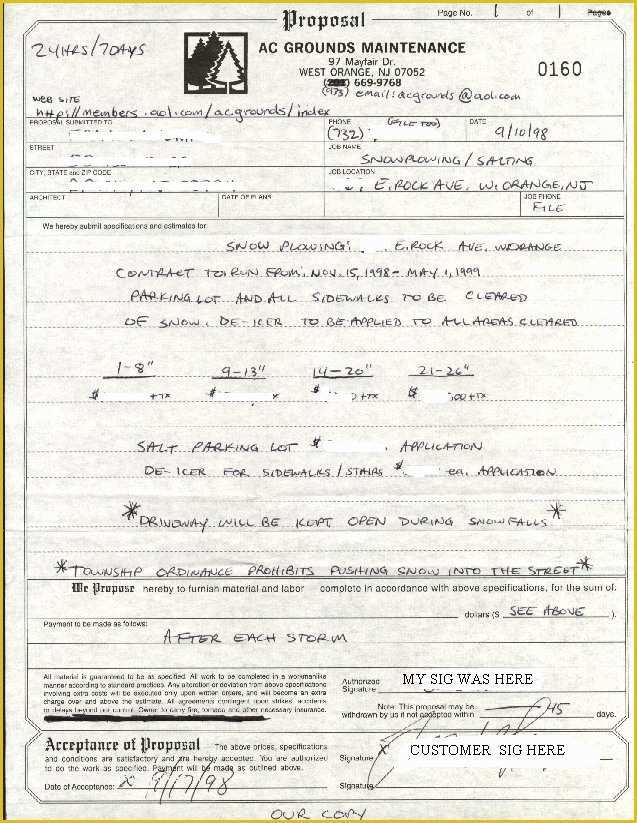 Proposal
Page No. 1 of 1 Pages
24HRS/7DAYS
AC GROUNDS MAINTENANCE
97 Mayfair Dr.
WEST ORANGE, NJ 07052
(973) 669-9768
email: acgrounds@aol.com
0160
WEB SITE
http://members.aol.com/acgrounds/index
PROPOSAL SUBMITTED TO
PHONE (FILE TOO)
(732)
DATE
9/10/98
STREET
JOB NAME
SNOWPLOWING/SALTING
CITY, STATE and ZIP CODE
JOB LOCATION
E. ROCK AVE, W. ORANGE, NJ
ARCHITECT
DATE OF PLANS
JOB PHONE
FILE
We hereby submit specifications and estimates for:
SNOW PLOWING: E. ROCK AVE. W.ORANGE
CONTRACT TO RUN FROM: NOV. 15, 1998 - MAY 1, 1999
PARKING LOT AND ALL SIDEWALKS TO BE CLEARED
OF SNOW. DE-ICER TO BE APPLIED TO ALL AREAS CLEARED
1-8" 9-13" 14-20" 21-26"
$ +TX $ $ +TX $ +TX
SALT PARKING LOT $ APPLICATION
DE-ICER FOR SIDEWALKS/STAIRS $ ea. APPLICATION
*DRIVEWAY WILL BE KEPT OPEN DURING SNOWFALLS*
*TOWNSHIP ORDINANCE PROHIBITS PUSHING SNOW INTO THE STREET*
We Propose hereby to furnish material and labor complete in accordance with above specifications, for the sum of:
dollars ($ SEE ABOVE ).
Payment to be made as follows:
AFTER EACH STORM
All material is guaranteed to be as specified. All work to be completed in a workmanlike
manner according to standard practices. Any alteration or deviation from above specifications
involving extra costs will be executed only upon written orders, and will become an extra
charge over and above the estimate. All agreements contingent upon strikes, accidents
or delays beyond our control. Owner to carry fire, tornado and other necessary insurance.
Authorized
Signature
MY SIG WAS HERE
Note: This proposal may be
withdrawn by us if not accepted within 45 days.
Acceptance of Proposal The above prices, specifications
and conditions are satisfactory and are hereby accepted. You are authorized
to do the work as specified. Payment will be made as outlined above.
Date of Acceptance: X 9/17/98
Signature X CUSTOMER SIG HERE
Signature
OUR COPY